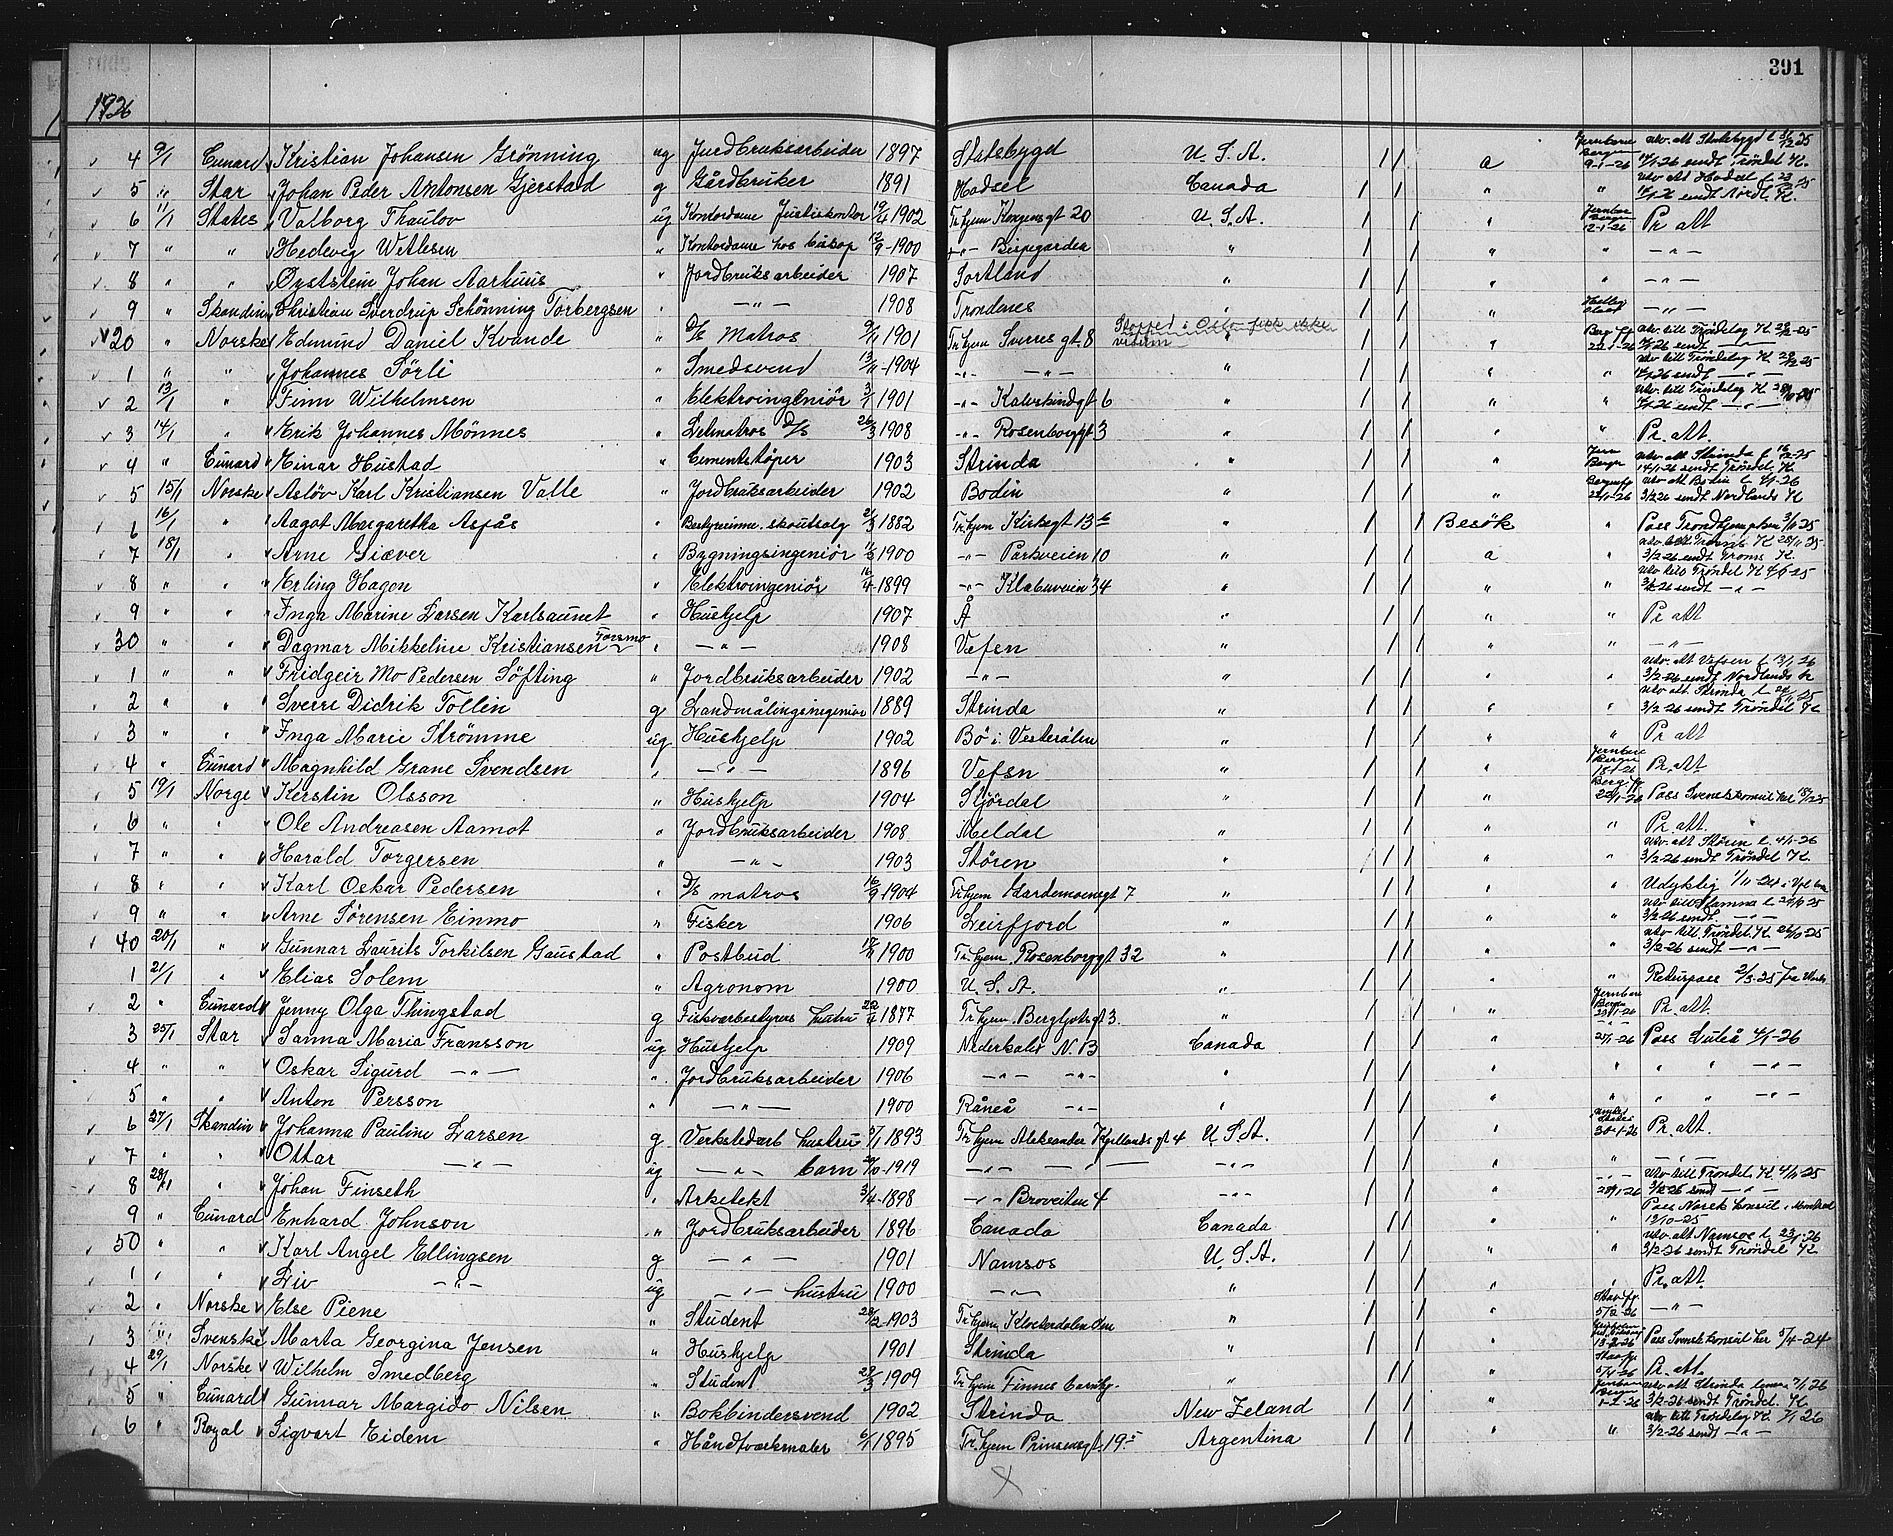 391
1926
4 9/1 Cunard Kristian Johansen Grönning ug Jordbruksarbeider 1897 Statsbygd U.S.A. a Jernbare Bergen 9-1-26 utv. att Statsbygd l 31/12 25 14/1-26 sendt Tröndel. K.
5 " Star Johan Peder Antonsen Gjerstad g Gårdbruker 1891 Hadsel Canada " " utv att Hadsel l 14/1-26 sendt Nordl. K.
6 11/1 States Valborg Thaulov ug Kontordame Justiskontor 1902 Tr.hjem Kongensgt 20 U.S.A. " 12-1-26 Pr att
7 " " Hedevig Wetlesen " Kontordame hos bisop 12/9-1900 -"- Bispegarden " " " -"-
8 " " Öyststein Johan Aarhuus " Jordbruksarbeider 1907 Sortland " " " -"-
9 " Skandin Christian Sverdrup Schönning Torbergsen " -"- 1908 Trondenes " " -"-
20 " Norske Edmund Daniel Kvande " D/S Matros 9/11 1901 Tr.hjem Sverres gt. 8 Stoppet i Oslo fick ikke visum " " Berg.fj 22-1-26 utv. till Tröndelag K 29/12-25 14/1-26 sendt -"-
1 " " Johannes Sörli " Smedsvend 13/11-1904 -"- -"- " " " utv till Tröndelag K 29/12-25 14/1-26 sendt -"-
2 13/1 " Finn Wilhelmsen " Elektroingeniör 3/1 1901 -"- Kalvskindgt 6 " " " utv. till Tröndelag K 14/1-26 sendt -"-
3 14/1 " Erik Johannes Mönnes " Letmatros D/S 26/3 1908 -"- Rosenborggt 3 " " " Pr. att.
4 " Cunard Einar Hustad " Cementstöper 1903 Strinda " " Jern Bergn utv att Strinda l 16/12-25 14/1-26 sendt Tröndel. K
5 15/1 Norske Aslöv Karl Kristiansen Valle " Jordbruksarbeider 1902 Bodin " " Bergensfj 22/1-26 utv att Bodin l 4/1-26 3/2 26 sendt Nordlands K
6 16/1 " Aagot Margaretha Asfås " Bestyrerinne. skoutsalg 21/3 1882 Tr.hjem Kirkegt 13 b " Besök " Pass Trondhjem 3/11 25
7 18/1 " Arne Giæver " Bygningsingeniör 11/3 1900 -"- Parkveien 10 " a " utv till Troms K 28/11 25 3/2-26 sendt Troms K.
8 " " Erling Hagen " Elektroingeniör 16/4-1899 -"- Klabuveien 34 " " " utv till Tröndel K 4/6-25 3/2-26 sendt -"-
9 " " Inga Marine Larsen Karlsaunet " Hushjelp 1907 Å " " " Pr att
30 " " Dagmar Mikkeline Kristiansen Forsmo " -"- 1908 Vefsn " " " -"-
1 " " Fridgeir Mo Pedersen Söfting " Jordbruksarbeider 1902 -"- " " " utv. att Vefsen l 13/1 26 3/2-26 sendt Nordlands K
2 " " Sverre Didrik Tollin g Landmålingsingeniør 1889 Strinda " " " utv att Strinda l 3/2-26 sendt Tröndel K
3 " " Inga Marie Strömme ug Hushjelp 1902 Bö i Vesterålen " " " Pr att
4 " Cunard Magnhild Grane Svendsen " -"- 1896 Vefsn " " Jernbare Bergen 18-1-26 Pr. att
5 19/1 Norge Kerstin Olsson " Hushjelp 1904 Stjördal " " Berg.fj 22/1-26 Pass Svenskkonsul her 18/12 25
6 " " Ole Andreasen Aamot " Jordbruksarbeider 1908 Meldal " " Pr. att. "
7 " " Harald Torgersen " -"- 1903 Stören " " " utv. att Stören l. 4/1-26 3/2-26 sendt Tröndel K.
8 " " Karl Oskar Pedersen " D/S matros 16/9 1904 Tr.hjem Gardemoensgt 7 " " Udyktig 1/11-24
9 " " Arne Sörensen Einmo " Fisker 1906 Leirfjord " " " 3/2-26 sendt. -"-
40 20/1 " Gunnar Laurits Torkilsen Gaustad " Postbud 1900 Tr.hjem Rosenborggt 32 " " utv till Tröndel. K 26/10-25 3/2-26 sendt -"-
1 21/1 " Elias Solem " Agronom 1900 U.S.A. " " Returpass 2/3-25 fra
2 " Cunard Jenny Olga Thingstad g Fiskvarbestyrers hustru 22/4 1877 Tr.hjem. Bergljotsgt 3. " " Jernbare Bergen 23/1-26 Pr. att
3 25/1 Star Sanna Maria Fransson ug Hushjelp 1909 Nederkalix N. B Canada " 27/1-26 Pass Luleå 4/1-26
4 " " Oskar Sigurd -"- " Jordbruksarbeider 1906 -"- -"- " " " " " -"-
5 " " Anton Persson " -"- 1900 Råneå -"- " " " " -"-
6 27/1 Skandin Johanna Pauline Larsen g Verkstedarb hustru 5/1 1893 Tr.hjem Aleksander Kjellands gt 4 U.S.A. " 30-1-26 Pr. att.
7 " " Ottar -"- ug -"- barn 29/10-1919 -"- -"- -"- " " -"-
8 28/1 " Johan Finseth " Arketekt 3/4-1898 -"- Broveiten 4 -"- " utv till Tröndel K 4/11-25 3/2-26 send -"-
9 " Cunard Enhard Johnson " Jordbruksarbeider 1896 Canada Canada " " Pass Norsk konsul i Montreal 12/10-25
50 " " Karl Angel Ellingsen g -"- 1901 Namsos U.S.A. " " utv. att Namsos l 23/1-26 3/2-26 sendt Tröndel K
1 " " Liv -"- ug -"- hustru 1900 -"- " " " Pr. att
2 " Norske Else Piene " Student 28/2-1903 Tr.hjem Klosterdalen Öen " " Stav.fj. 5/2-26 -"-
3 " Svenske Marta Georgina Jensen " Hushjelp 1901 Strinda " " Pass Svensk konsul her 5/4-24
4 29/1 Norske Wilhelm Smedberg " Student 29/3 1909 Tr.hjem Finnes barnhj. " " Stav.fj Pr. att.
5 " Cunard Gunnar Margido Nilsen " Bokbindersvend 1902 Strinda New Zeland " Jernbare Bergn 1-2-26 utv att Strinda 3/2-26 sendt Tröndel. K
6 " Royal Sigvart Eidem " Håndtverkmaler 6/1 1895 Tr.hjem Prinsensgt 19 Argentina " utv till Tröndelag K. 7/1 26 3/2-26 sendt -"-
X